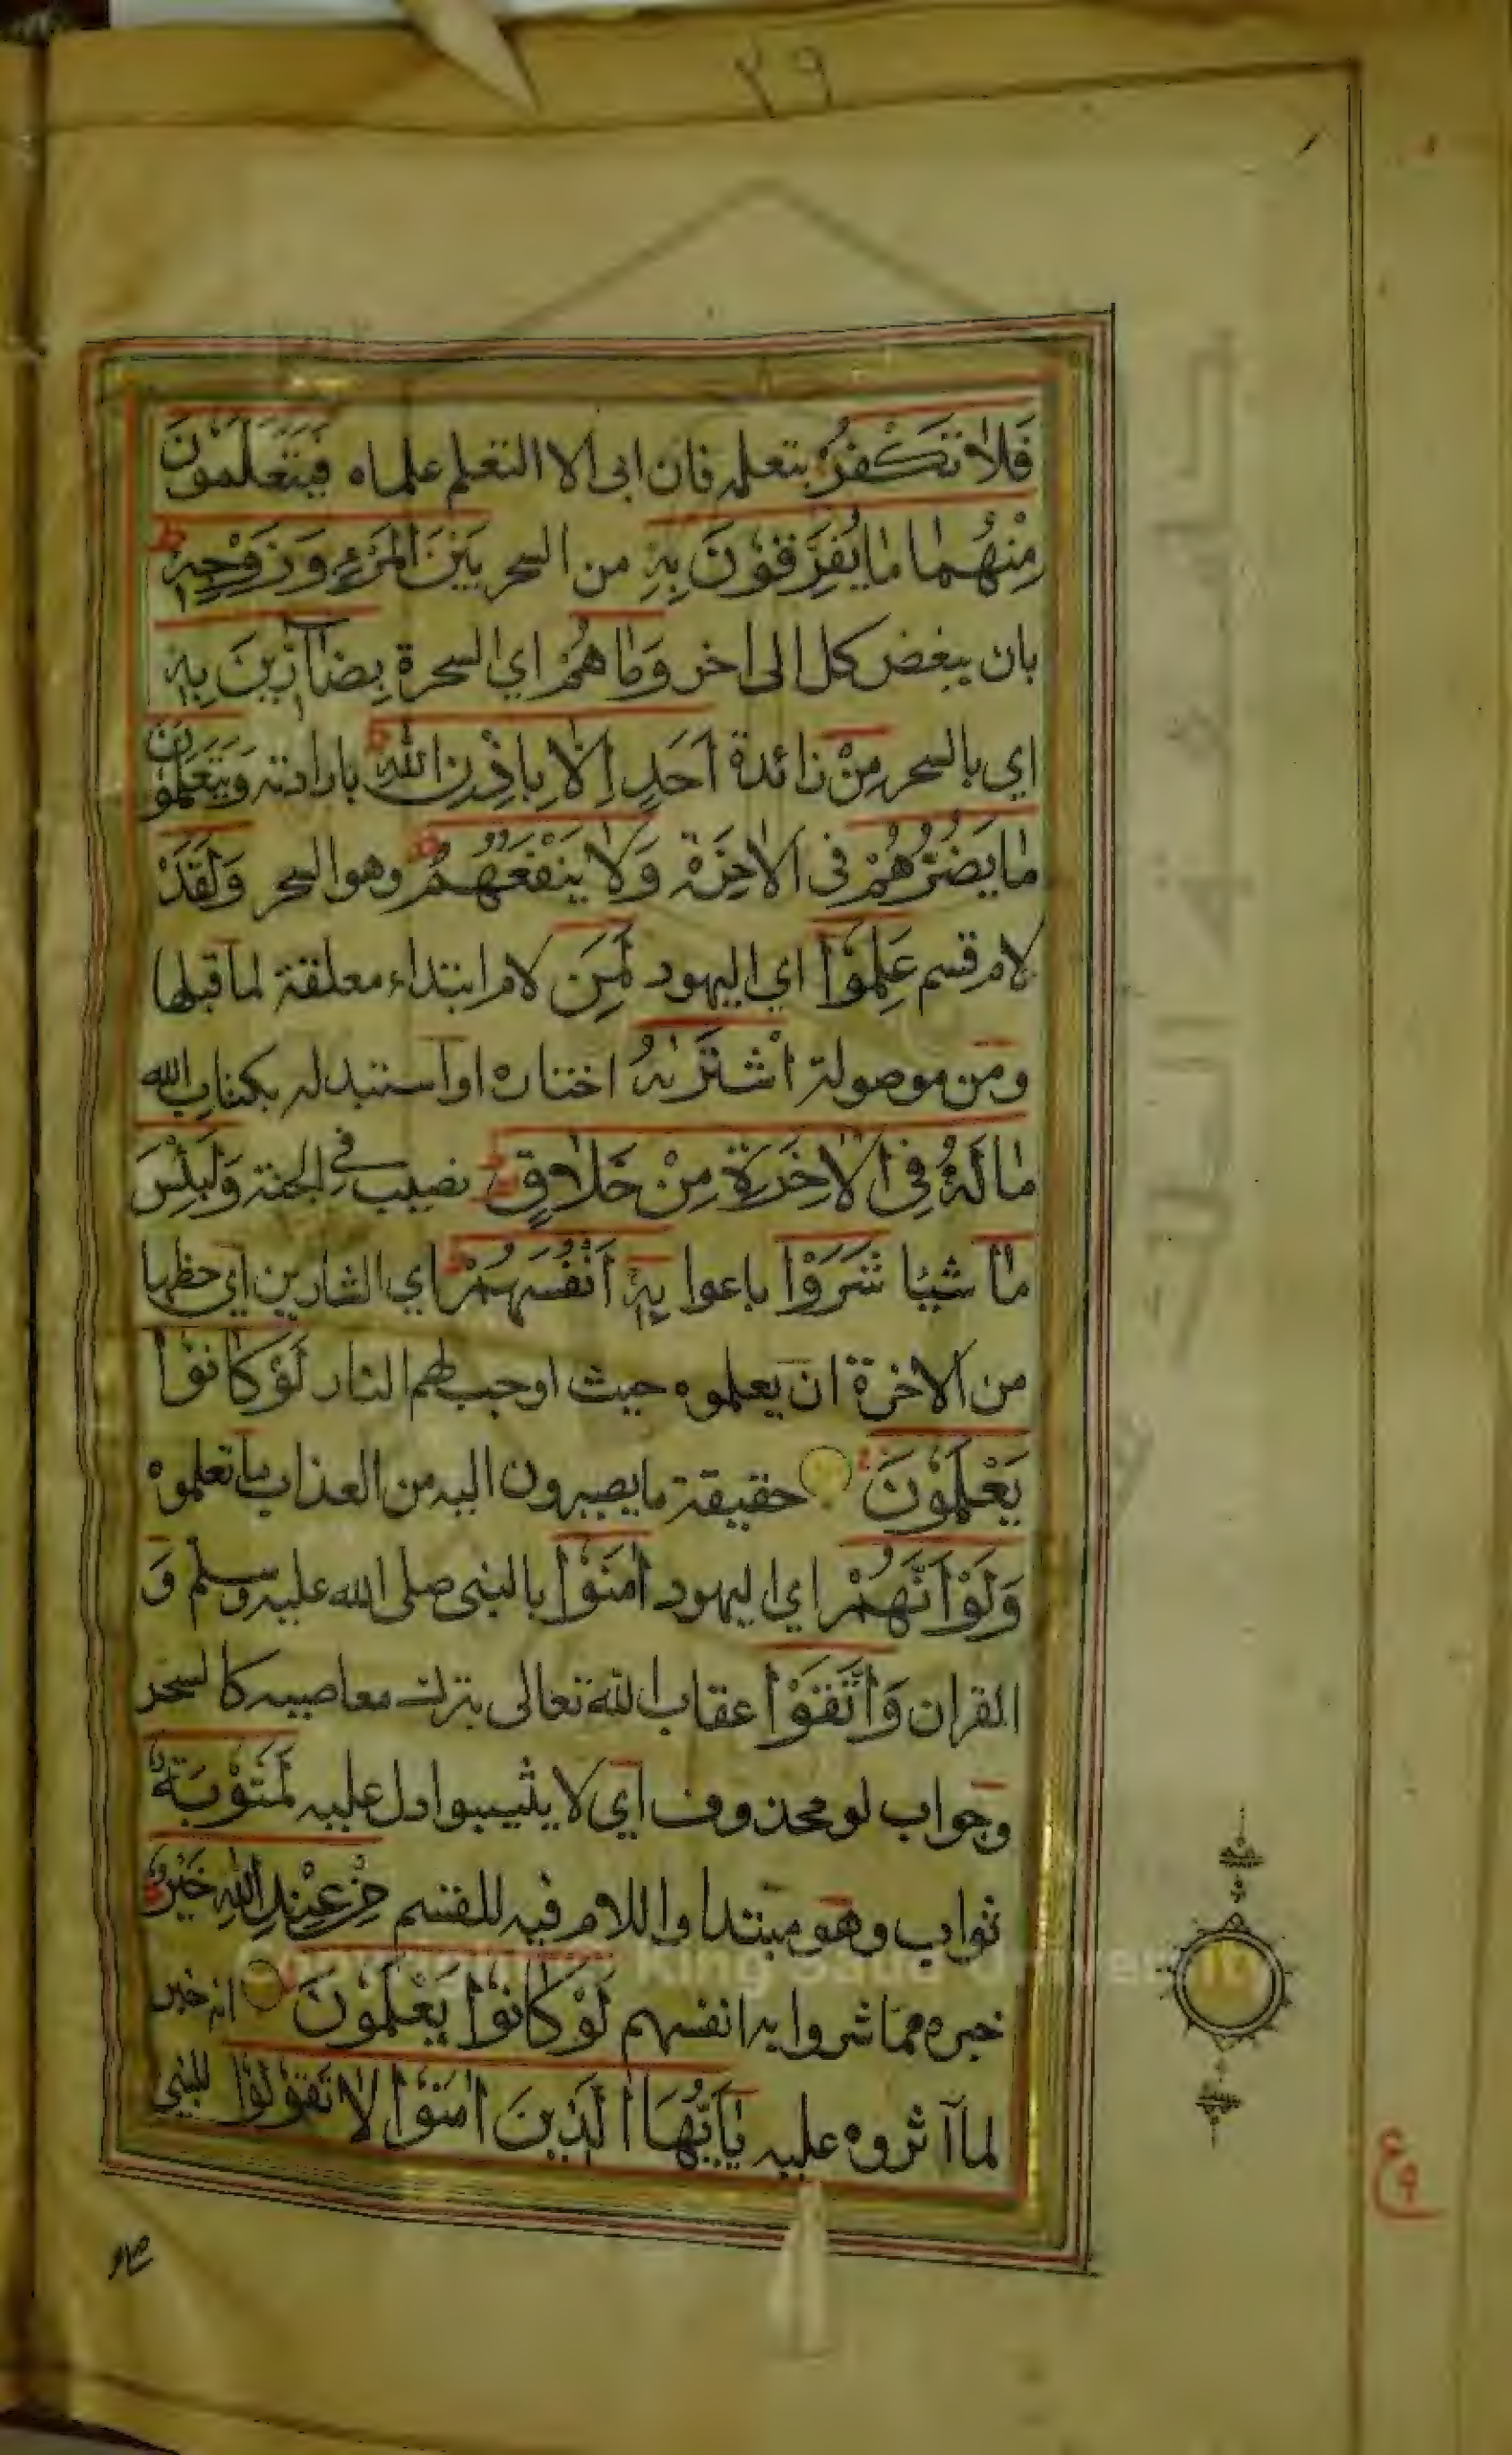 ٢٩
فَلَا تَكْفُرْ بتعلمه فان ابى الا التعلم علماه فَيَتَعَلَّمُونَ
مِنْهُمَا مَا يُفَرِّقُوْنَ بِهٖ من السحر بَيْنَ الْمَرْءِ وَزَوْجِهٖ ط
بان يبغض كل الى اخر وَمَا هُمْ اي السحرة بِضَآرِّيْنَ بِهٖ
اي بالسحر مِنْ زائدة اَحَدٍ اِلَّا بِاِذْنِ اللّٰهِ ط بارادته وَيَتَعَلَّمُوْنَ
مَا يَضُرُّهُمْ فى الاخرة وَلَا يَنْفَعُهُمْ ط وهو السحر وَلَقَدْ
لام قسم عَلِمُوْا اي اليهود لَمَنِ لام ابتداء معلقة لما قبلها
ومن موصولة اشْتَرٰىهُ اختاره او استبدله بكتاب الله
مَا لَهٗ فِى الْاٰخِرَةِ مِنْ خَلَاقٍ نصيب في الجنة وَلَبِئْسَ
مَا شيئا شَرَوْا باعوا بِهٖ اَنْفُسَهُمْ ط اي الشارين اي حظها
من الاخرة ان يعلموه حيث اوجب لهم النار لَوْ كَانُوْا
يَعْلَمُوْنَ حقيقة ما يصيرون اليه من العذاب ما تعلموه
وَلَوْ اَنَّهُمْ اي اليهود اٰمَنُوْا بالنبى صلى الله عليه وسلم وَ
القران وَاتَّقَوْا عقاب الله تعالى بترك معاصيه كالسحر
وجواب لو محذوف اي لا يثيبوا دل عليه لَمَثُوْبَةٌ
ثواب وهو مبتدا واللام فيه للقسم مِّنْ عِنْدِ اللّٰهِ خَيْرٌ
خبره مما شروا به انفسهم لَوْ كَانُوْا يَعْلَمُوْنَ انه خير
لما آثروه عليه يٰٓاَيُّهَا الَّذِيْنَ اٰمَنُوْا لَا تَقُوْلُوْا للنبى
Copyright © King Saud University